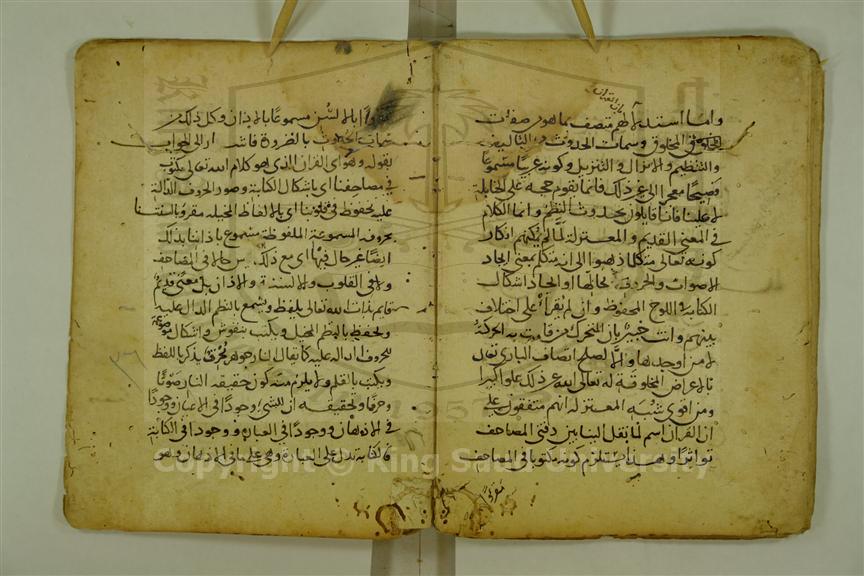 بان القرآن
واما استدلالهم متصف بما هو من صفات
المخلوق وسمات الحدوث من التأليف
والتنظيم والانزال والتنزيل وكونه عربيا مسموعا
فصيحا معجزا الى غير ذلك فانما يقوم حجة على الحنابلة
لا علينا فانا قايلون بحدوث النظم وانما الكلام
في المعنى القديم والمعتزلة لما لم يمكنهم انكار
كونه تعالى متكلما ذهبوا الى ان متكلم بمعنى ايجاد
الاصوات والحروف في محالها او ايجاد اشكال
الكتابة في اللوح المحفوظ وان لم يقرأ على اختلاف
بينهم وانت خبير بان المتحرك من قامت به الحركة
لا من اوجدها والا لصلح اتصاف الباري تعالى
بالاعراض المخلوقة له تعالى الله عن ذلك علوا كبيرا
ومن اقوى شبه المعتزلة انهم متفقون على
ان القرآن اسم لما نقل الينا بين دفتي المصاحف
تواترا وهذا يستلزم كونه مكتوبا في المصاحف
مقروا
مقروا بالالسن مسموعا بالاذان وكل ذلك من
سمات الحدوث بالضرورة فاشار الى الجواب
بقوله وهو اي القران الذي هو كلام الله تعالى مكتوب
في مصاحفنا اي باشكال الكتابة وصور الحروف الدالة
عليه محفوظ في قلوبنا اي بالالفاظ المخيلة مقرو بالسنتنا
بحروفه المسموعة الملفوظة مسموع باذاننا بذلك
ايضا غير حال فيها اي مع ذلك ليس حالا في المصاحف
ولا في القلوب ولا السنة والاذان بل معنى قديم
قايم بذات الله تعالى يلفظ ويسمع بالنظم الدال عليه
ويحفظ بالنظم المخيل ويكتب بنقوش واشكال موضوعة
للحروف الدالة عليه كما يقال النار جوهر محرق يذكر باللفظ
ويكتب بالقلم ولا يلزم منه كون حقيقة النار صوتا
وحرفا وتحقيقه ان للشيء وجودا في الاعيان ووجودا
في الاذهان ووجودا في العبارة ووجودا في الكتابة
فالكتابة تدل على العبارة وهي على ما في الاذهان وهو
Copyright © King Saud University
1957